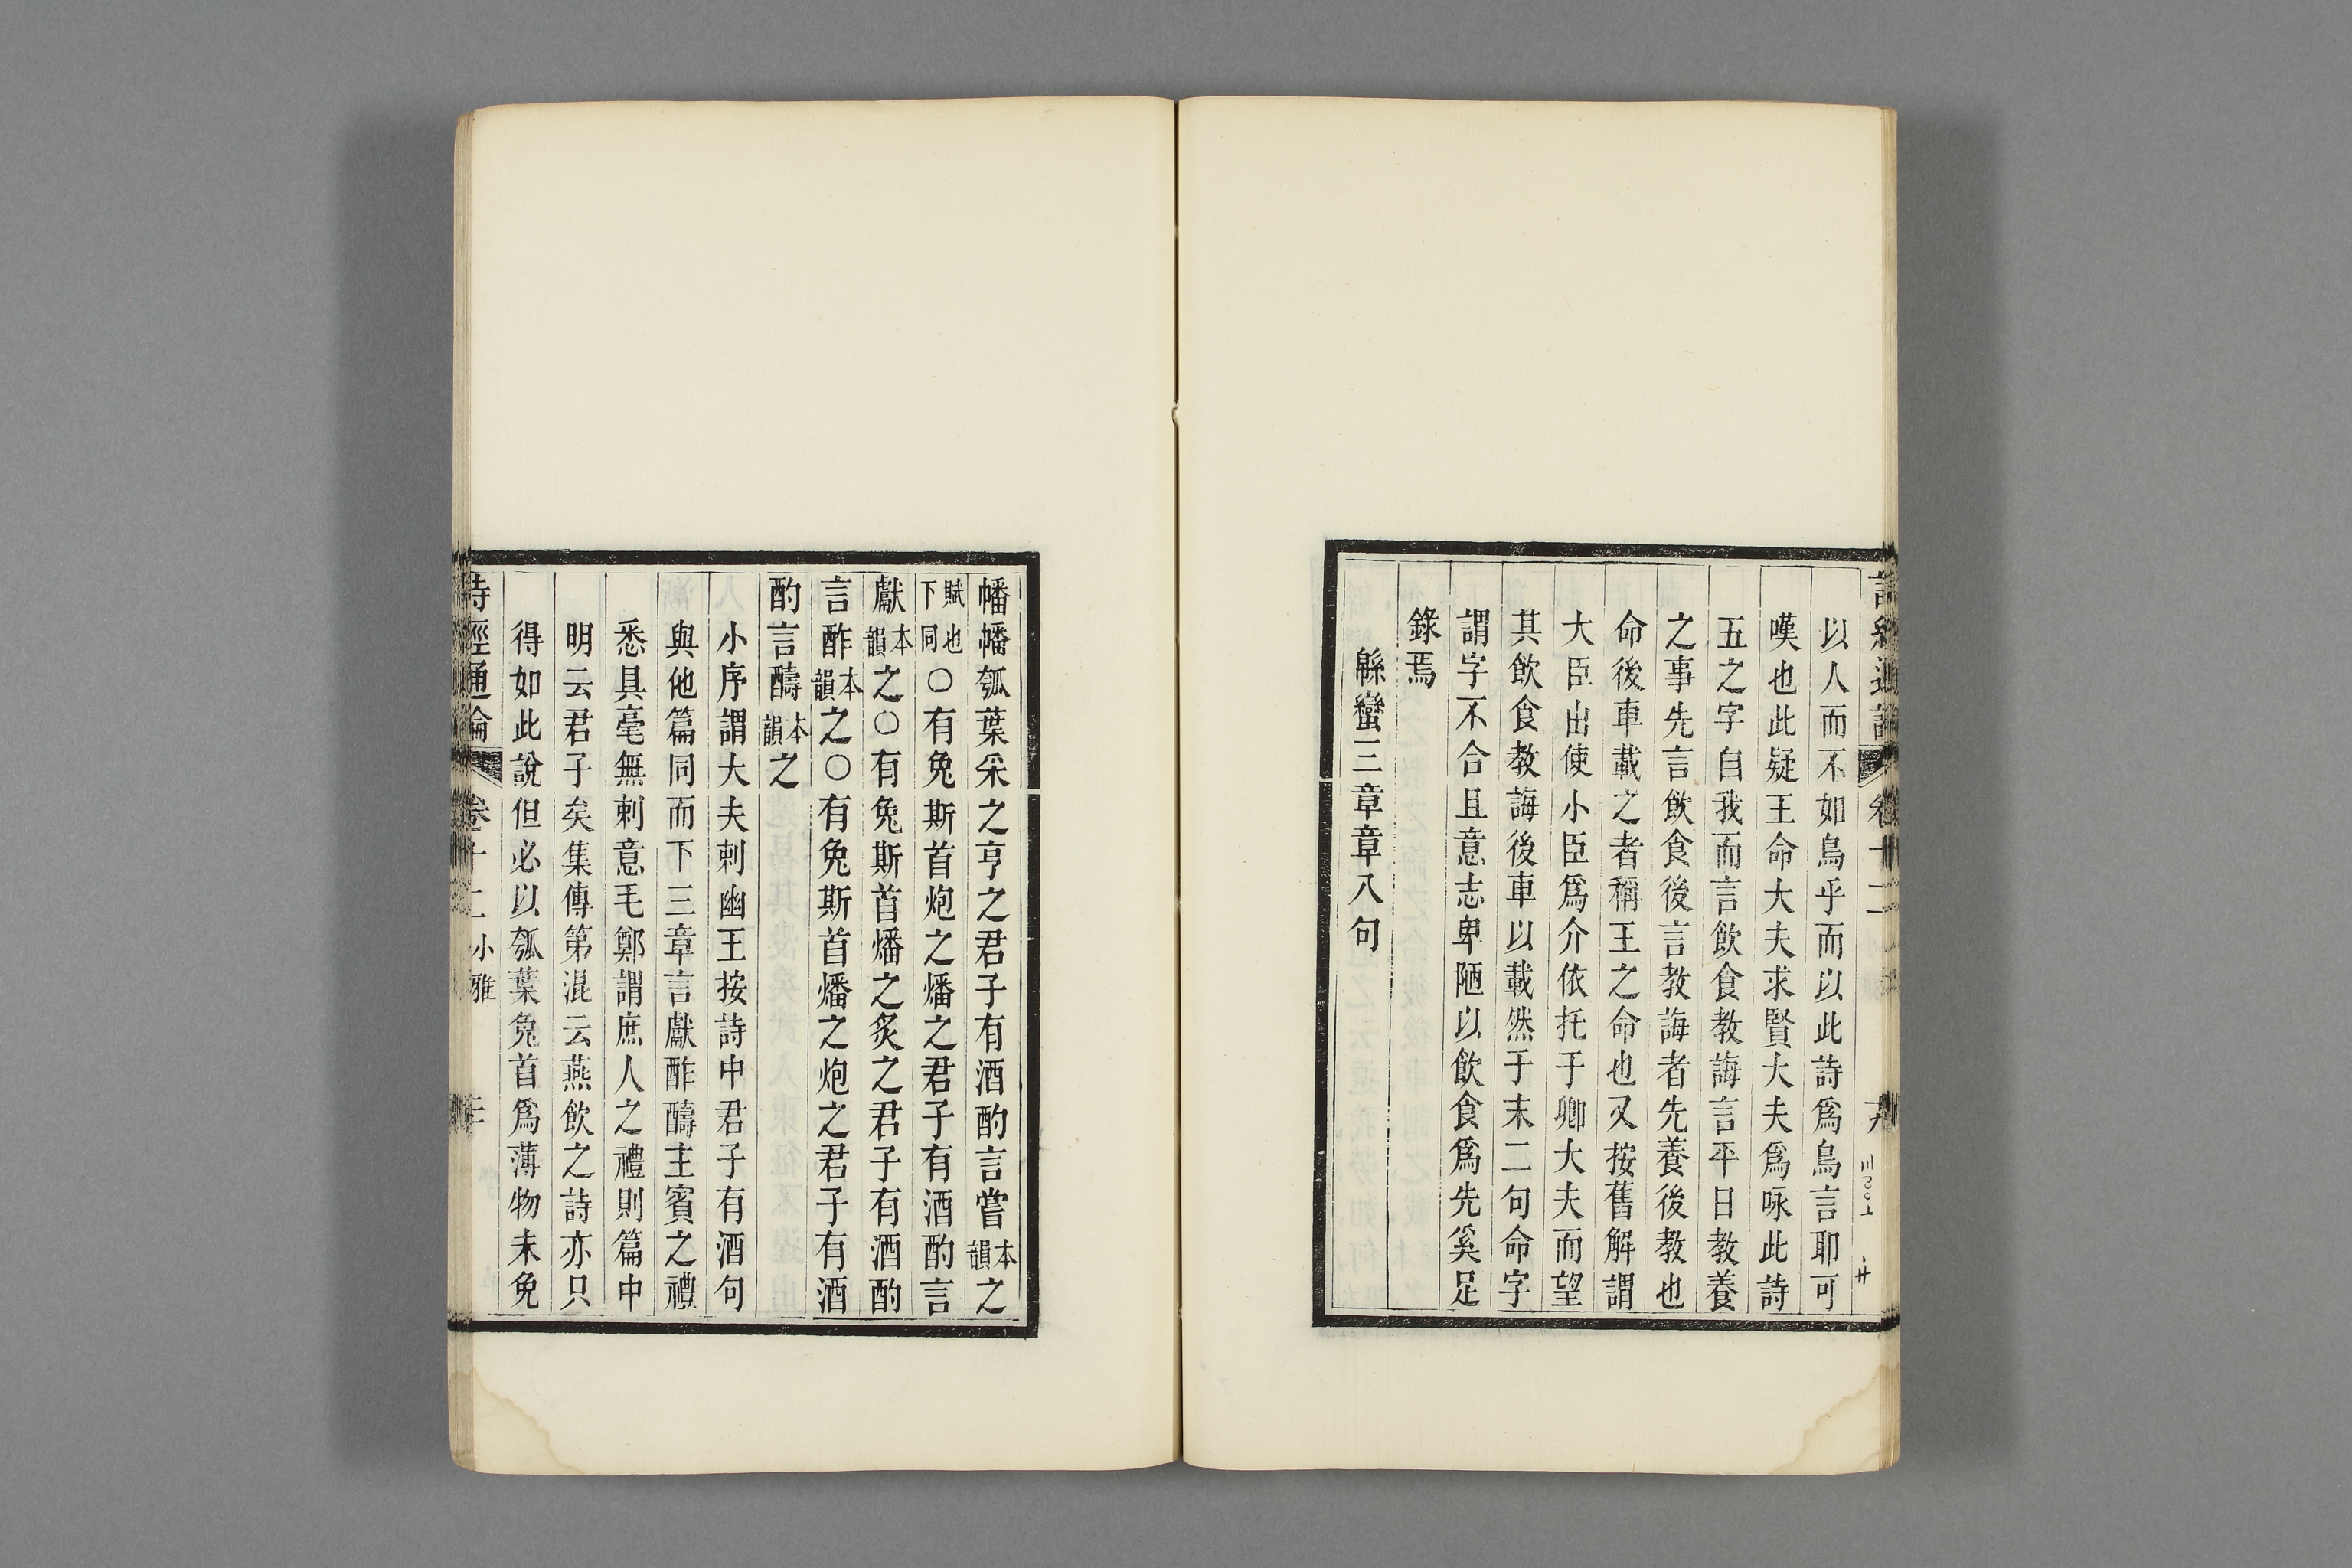 以人而不如鳥乎而以此詩爲鳥言耶可
嘆也此疑王命大夫求賢大夫爲咏此詩
五之字自我而言飮食敎誨言平日敎養
之事先言飮食後言敎誨者先養後敎也
命後車載之者稱王之命也又按舊解謂
大臣出使小臣爲介依托于卿大夫而望
其飮食敎誨後車以載然于末二句命字
謂字不合且意志卑陋以飮食爲先奚足
錄焉
緜蠻三章章八句
幡幡瓠葉采之亨之君子有酒酌言嘗本韻之
賦也下同○有兔斯首炮之燔之君子有酒酌言
獻本韻之○有兔斯首燔之炙之君子有酒酌
言酢本韻之○有兔斯首燔之炮之君子有酒
酌言醻本韻之
小序謂大夫刺幽王按詩中君子有酒句
與他篇同而下三章言獻酢醻主賓之禮
悉具毫無刺意毛鄭謂庶人之禮則篇中
明云君子矣集傳第混云燕飮之詩亦只
得如此說但必以瓠葉兔首爲薄物未免
詩經通論 卷十二 小雅